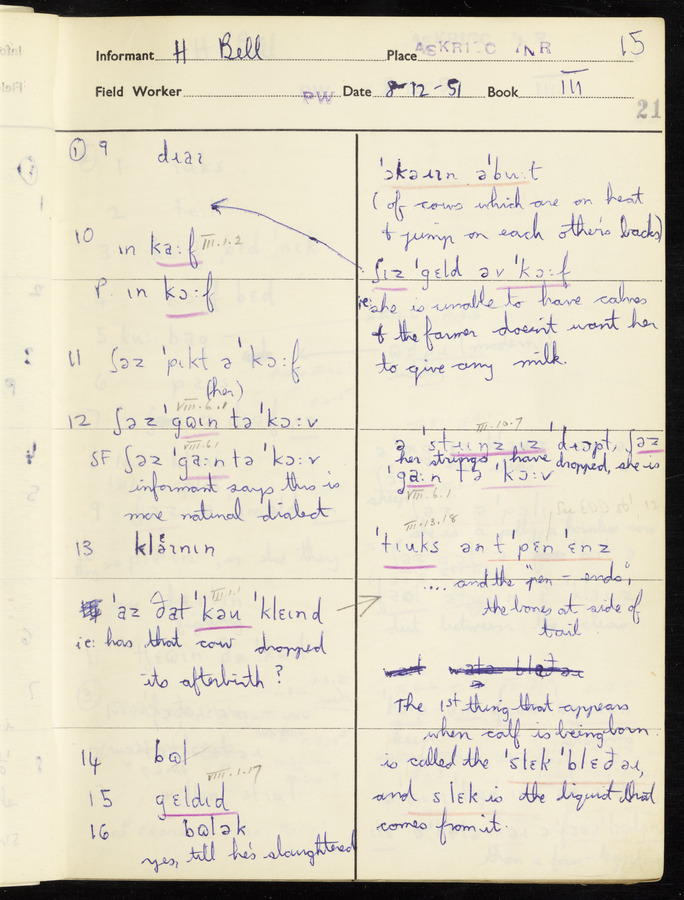 Informant H Bell Place ASKRIGG NR 15
Field Worker PW Date 8-12-51 Book III
21
① 9 dɪəɾ
10 ɪn ka:f III.1.2
P. ɪn kɔ:f
11 ʃəz 'pɪkt ə 'kɔ:f
(her)
VIII.6.1
12 ʃəz 'gɑɪn tə 'kɔ:v
VIII.6.1
SF ʃəz 'ga:n tə 'kɔ:v
informant says this is
more natural dialect
13 klɛ̈ənɪn
III.1.1
'az ðat 'kəu 'kleɪnd
ie: has that cow dropped
its afterbirth?
14 bɷl
VIII.1.17
15 gɛldɪd
16 bɷlək
yes, till he's slaughtered
'ɔkəɪɪn ə'bu:t
(of cows which are on heat
& jump on each other's backs)
ʃɪz 'gɛld əv 'kɔ:f
ie: she is unable to have calves
& the farmer doesn't want her
to give any milk.
III.10.7
ə 'stɪɪnz ɪz 'dɾɔpt, ʃəz
her strings have dropped, she is
'ga:n tə 'kɔ:v
VIII.6.1
III.13.18
'tɪuks ən t 'pɛn 'ɛnz
.... and the "pen-ends",
the bones at side of
tail
The 1st thing that appears
when calf is being born
is called the 'slɛk 'blɛðəɪ,
and slɛk is the liquid that
comes from it.